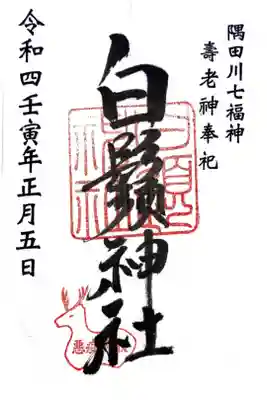 隅田川七福神
壽老神奉祀
白鬚神社
令和四壬寅年正月五日